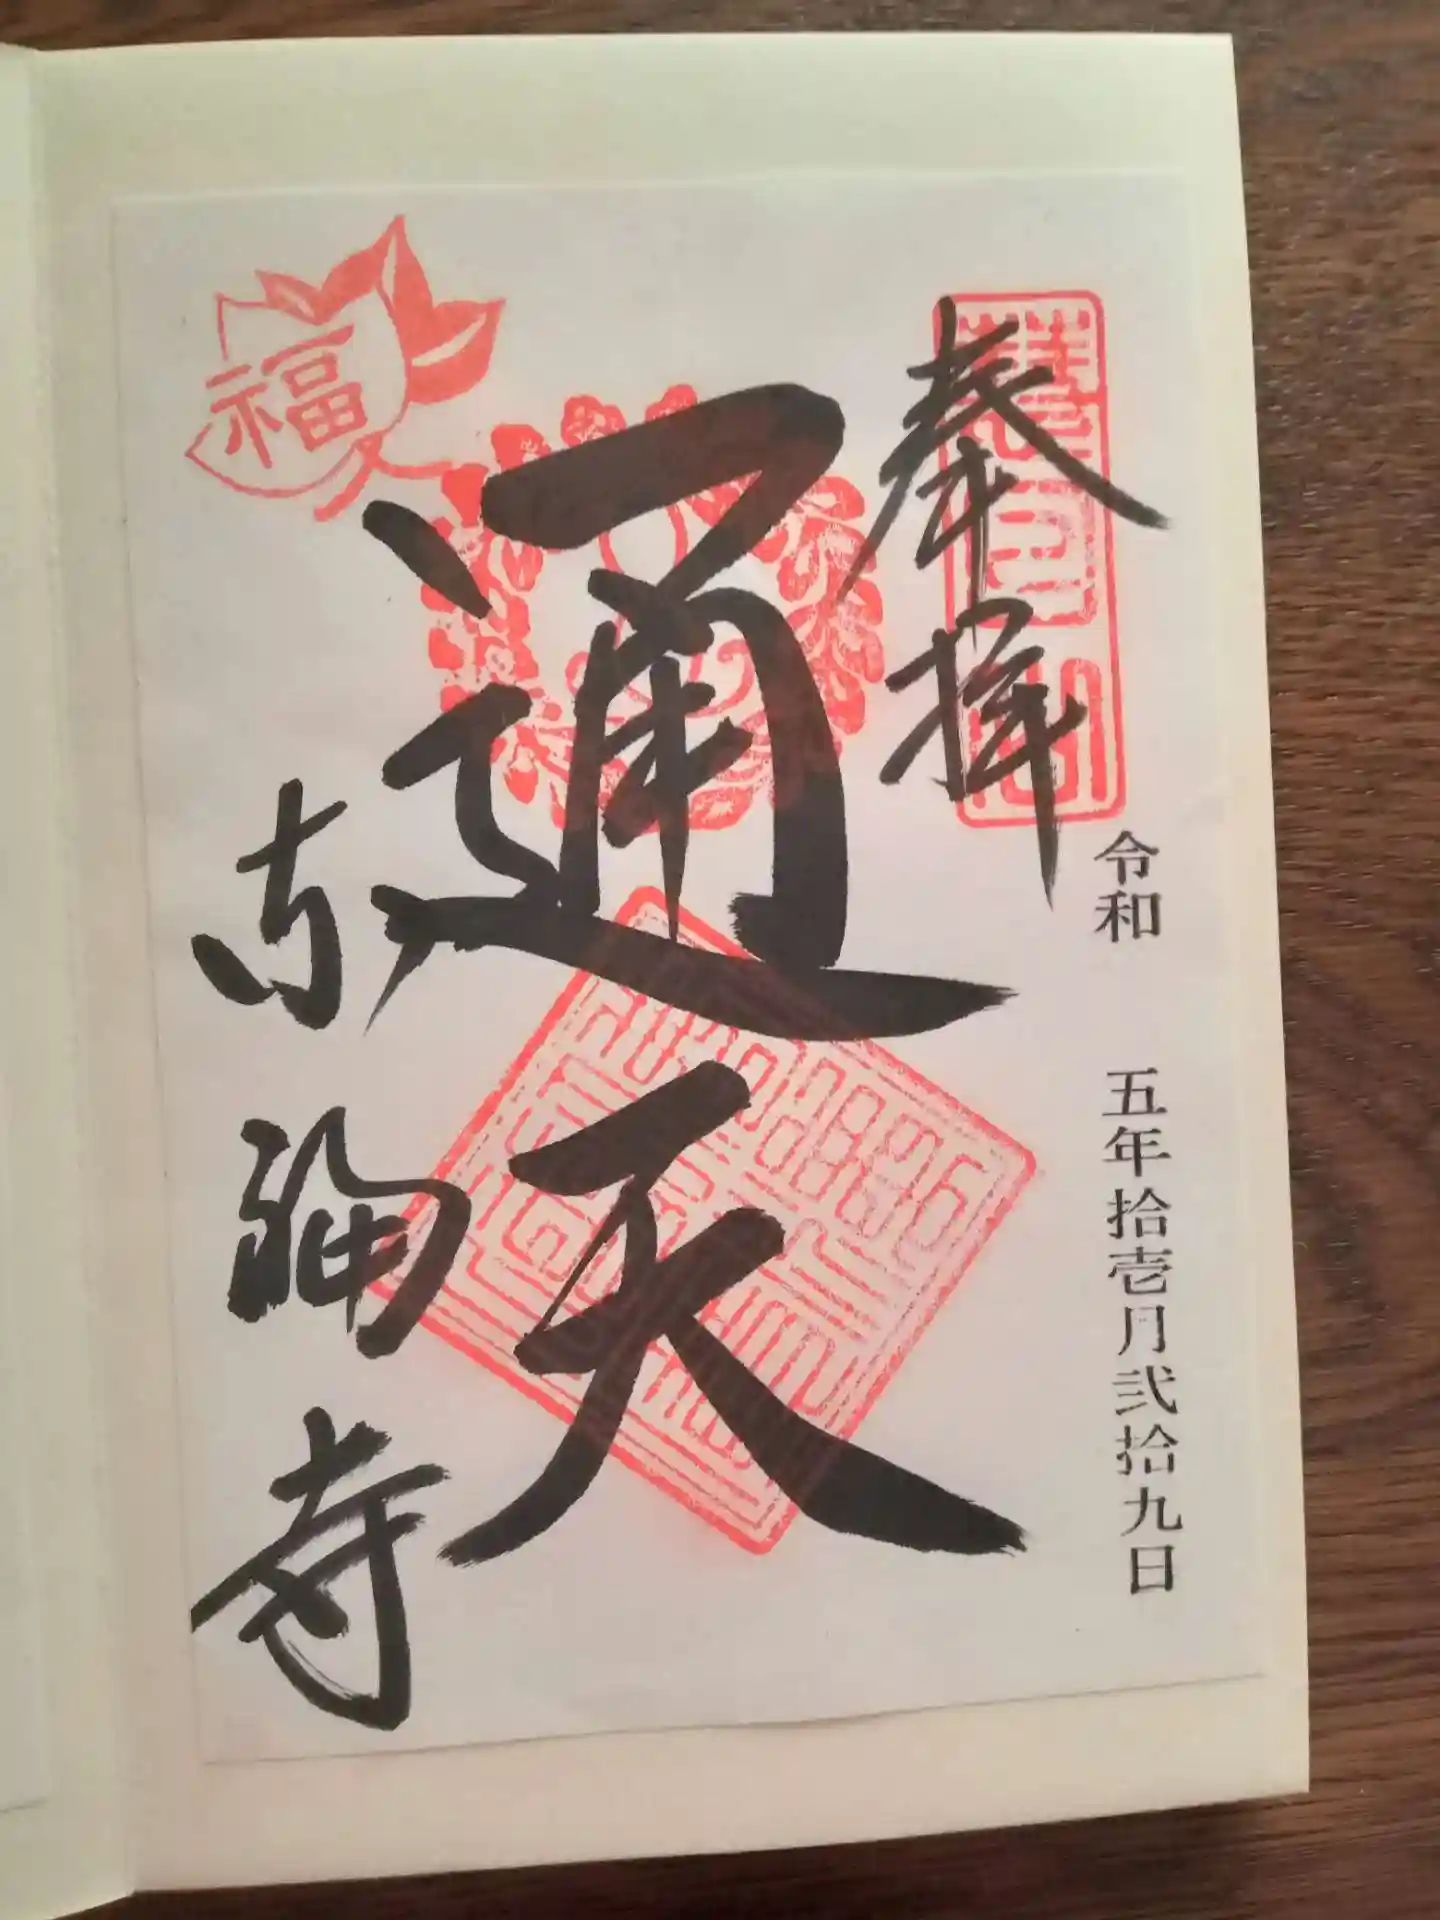 奉拝
令和 五年拾壱月弐拾九日
通天
東福寺
福